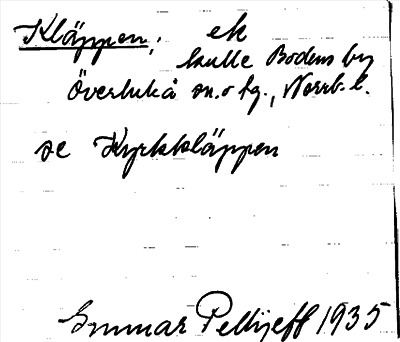 Kläppen, ek
kulle Bodens by
Överluleå sn. o tg., Norrb. l.
se Kyrkkläppen
Gunnar Pellijeff 1935